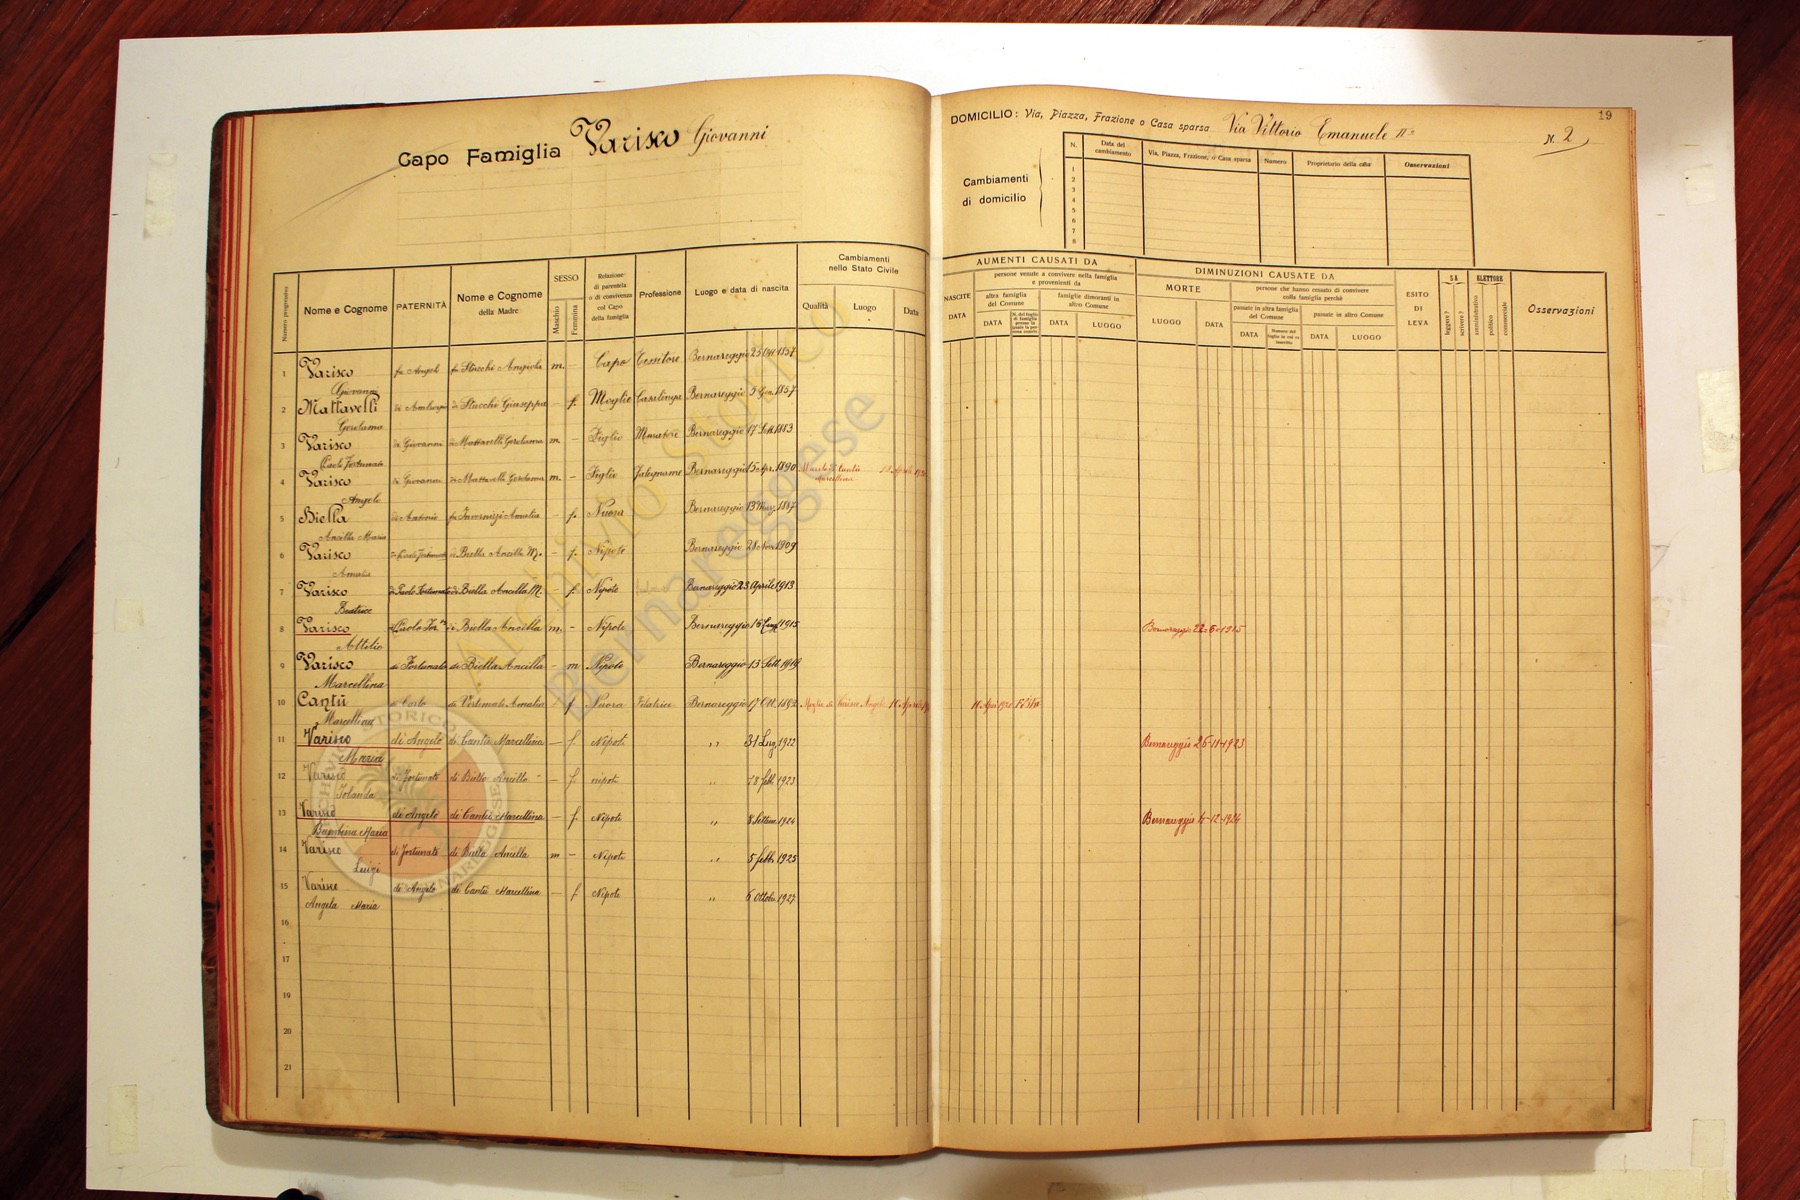 Capo Famiglia Varisco Giovanni
Numero progressivo
Nome e Cognome
PATERNITÀ
Nome e Cognome
della Madre
SESSO
Maschio
Femmina
Relazione
di parentela
o di convivenza
col Capo
della famiglia
Professione
Luogo e data di nascita
Cambiamenti
nello Stato Civile
Qualità
Luogo
Data
1 Varisco fu Angelo fu Stucchi Angiola m. - Capo Tessitore Bernareggio 25 1857
Giovanni
2 Mattavelli di Ambrogio di Stucchi Giuseppa - f. Moglie Casalinga Bernareggio 5 Gen. 1857
Gerolama
3 Varisco di Giovanni di Mattavelli Gerolama m. - Figlio Muratore Bernareggio 17 Sett. 1883
Paolo Fortunato
4 Varisco di Giovanni di Mattavelli Gerolama m. - Figlio Falegname Bernareggio 15 Apr. 1890 Marito di Cantù
Marcellina
Angelo
5 Biella di Antonio fu Invernizzi Amalia - f. Nuora Bernareggio 13 Mar. 1887
Ancella Maria
6 Varisco di Paolo Fortunato di Biella Ancilla M. - f. Nipote Bernareggio 28 Nov. 1909
Amalia
7 Varisco di Paolo Fortunato di Biella Ancilla M. - f. Nipote Bernareggio 23 Aprile 1913
Beatrice
8 Varisco di Paolo For. di Biella Ancilla m. - Nipote Bernareggio 1915
Attilio
9 Varisco di Fortunato di Biella Ancilla - m Nipote Bernareggio 13 Sett. 1919
Marcellina
10 Cantù di Carlo di Vertemati Amalia f Nuora Filatrice Bernareggio 17 Ott. 1892 Moglie di Varisco Angelo
Marcellina
11 Varisco di Angelo di Cantù Marcellina - f. Nipoti ,, 31 Lug. 1922
Maria
12 Varisco di Fortunato di Biella Ancilla - f. nipoti ,, 18 febb. 1923
Iolanda
13 Varisco di Angelo di Cantù Marcellina - f. Nipoti ,, 8 Settem. 1924
Bambina Maria
14 Varisco di Fortunato di Biella Ancilla m - Nipoti ,, 5 febb. 1925
Luigi
15 Varisco di Angelo di Cantù Marcellina - f. Nipote ,, 6 Ottobr. 1927
Angela Maria
16
17
19
20
20
21
DOMICILIO: Via, Piazza, Frazione o Casa sparsa Via Vittorio Emanuele II° N. 2
19
Cambiamenti
di domicilio
N.
Data del
cambiamento
Via, Piazza, Frazione, o Casa sparsa
Numero
Proprietario della casa
Osservazioni
1
2
3
4
5
6
7
8
AUMENTI CAUSATI DA
NASCITE
DATA
persone venute a convivere nella famiglia
e provenienti da
altra famiglia
del Comune
DATA
famiglie dimoranti in
altro Comune
DATA
LUOGO
DIMINUZIONI CAUSATE DA
MORTE
LUOGO
DATA
persone che hanno cessato di convivere
colla famiglia perchè
passate in altra famiglia
del Comune
DATA
passate in altro Comune
DATA
LUOGO
ESITO
DI
LEVA
SA
leggere?
scrivere?
ELETTORE
amministrativo
politico
commerciale
Osservazioni
Bernareggio 1915
Bernareggio 25-11-1923
Bernareggio 4-12-1924
Archivio Storico
Bernareggese
ARCHIVIO STORICO
BERNAREGGESE